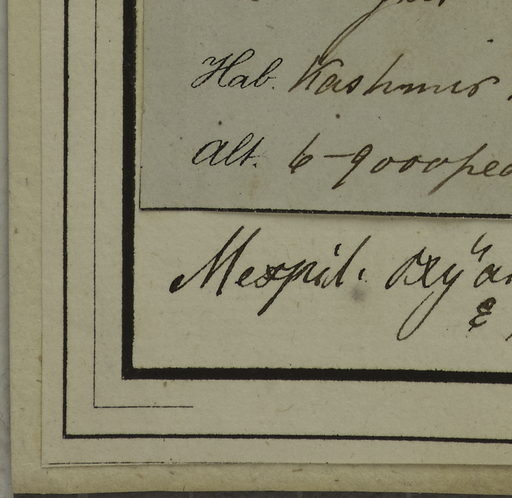 Hab. Kashmir
Alt. 6-9000ped
Mespil. Oxy"a
&